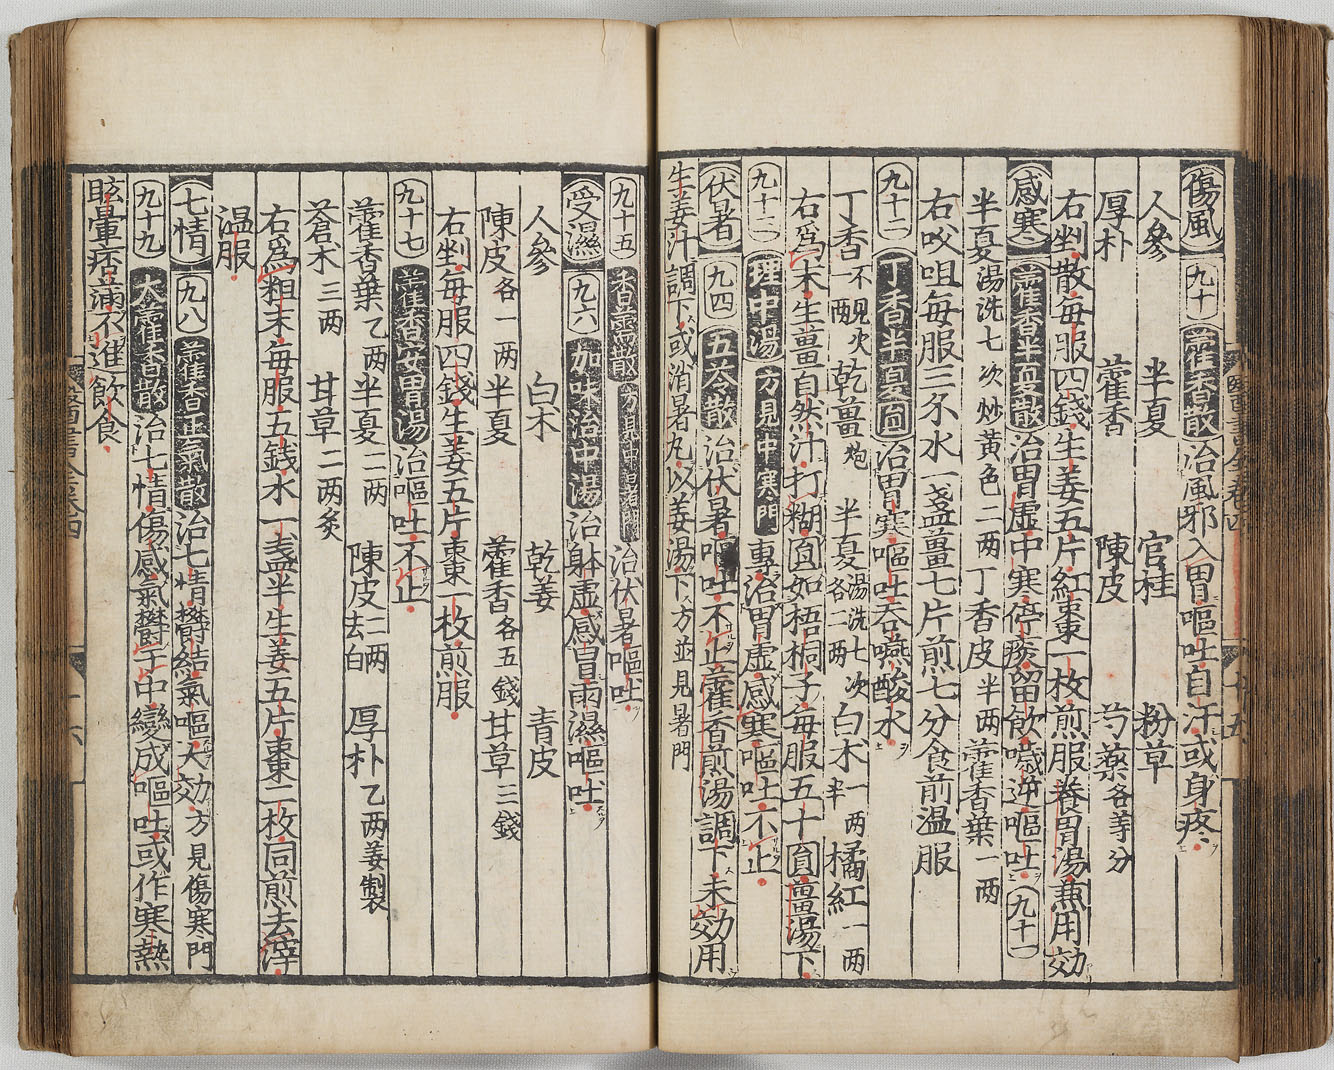 傷風 九十 藿香散 治風邪入胃嘔吐自汗或身疼
人參 半夏 官桂 粉草
厚朴 藿香 陳皮 芍藥各等分
右剉散每服四錢生姜五片紅棗一枚煎服養胃湯兼用効
感寒 藿香半夏散 治胃虛中寒停痰留飲噦逆嘔吐 九十一
半夏湯洗七次炒黄色二两 丁香皮半两 藿香葉一两
右㕮咀每服三錢水一盞薑七片煎七分食前温服
九十二 丁香半夏圓 治胃寒嘔吐吞嚥酸水
丁香不見火一两 乾薑炮 半夏湯洗七次各二两 白朮一两半 橘紅一两
右爲末生薑自然汁打糊圓如梧桐子每服五十圓薑湯下
九十三 理中湯 方見中寒門 專治胃虛感寒嘔吐不止
伏暑 九四 五苓散 治伏暑嘔吐不止藿香煎湯調下未効用
生姜汁調下或消暑丸以姜湯下方並見暑門
九十五 香薷散 方見中暑門 治伏暑嘔吐
受濕 九六 加味治中湯 治躰虛感冒雨濕嘔吐
人參 白朮 乾姜 青皮
陳皮各一两 半夏 藿香各五錢 甘草三錢
右剉每服四錢生姜五片棗一枚煎服
九十七 藿香安胃湯 治嘔吐不止
藿香葉乙两 半夏二两 陳皮二两去白 厚朴乙两姜製
蒼朮三两 甘草二两炙
右爲粗末每服五錢水一盞半生姜五片棗二枚同煎去滓
温服
七情 九八 藿香正氣散 治七情欝結氣嘔大効方見傷寒門
九十九 大藿香散 治七情傷感氣欝于中變成嘔吐或作寒熱
眩暈痞滿不進飲食